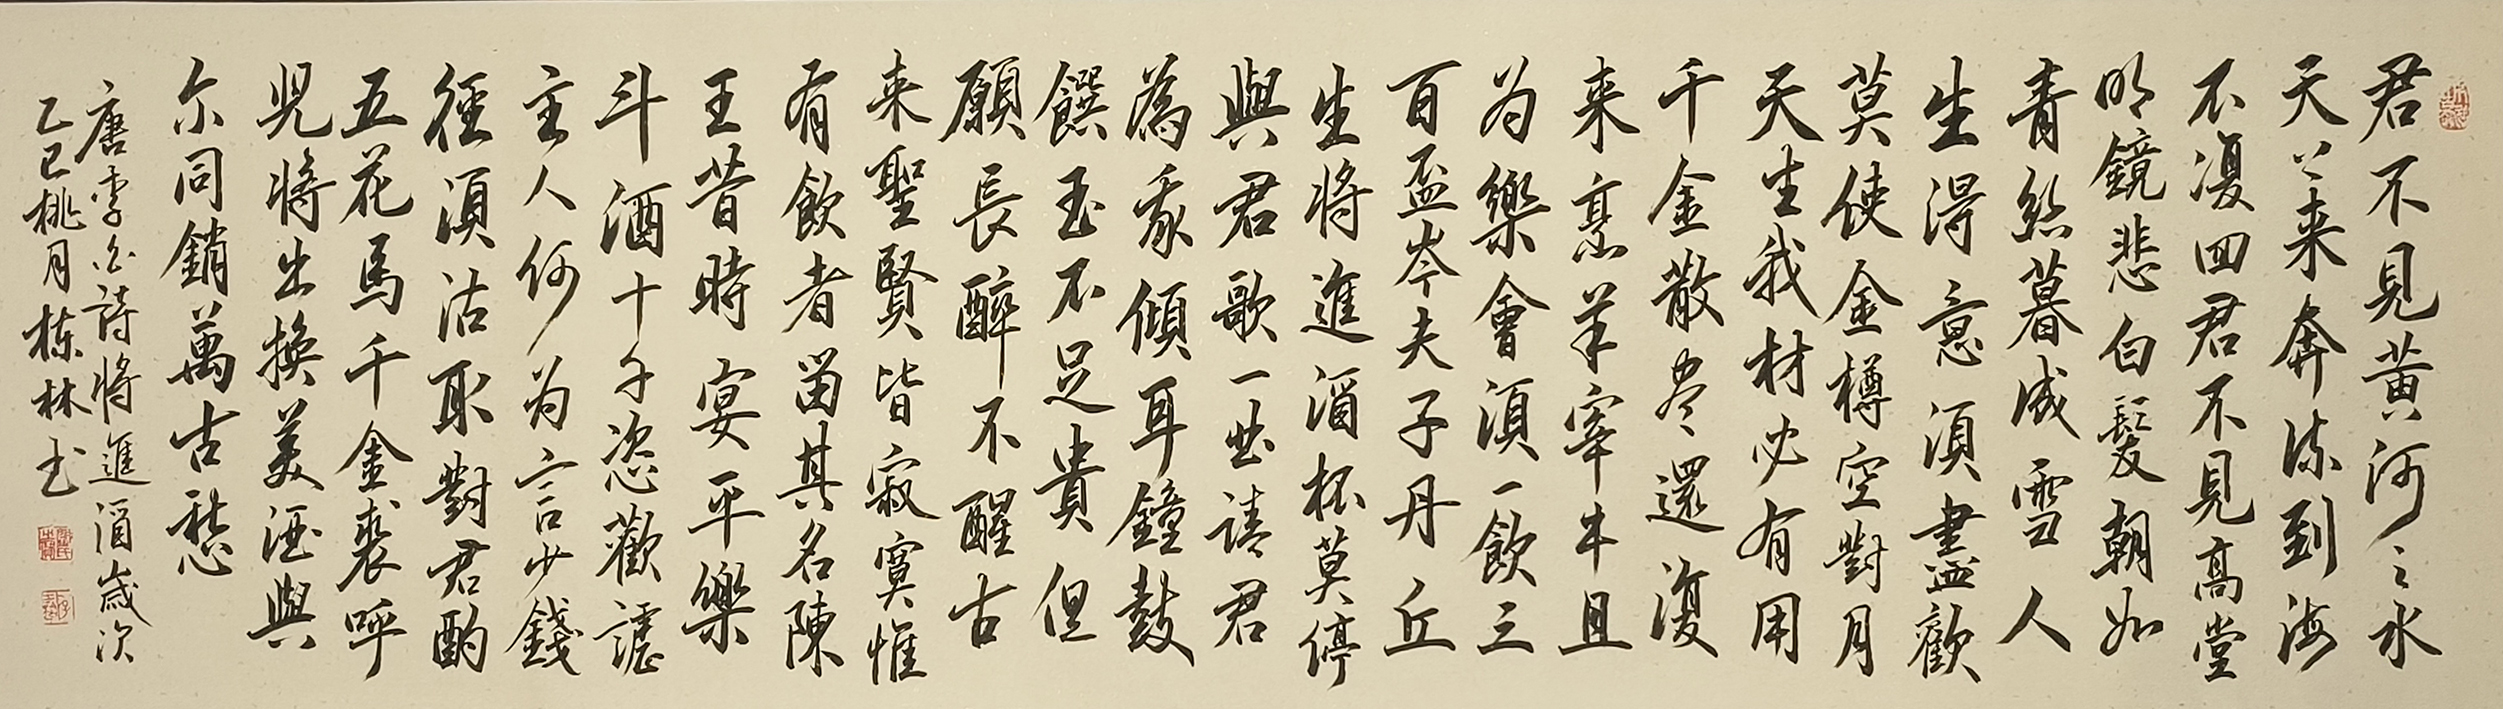 君不見黄河之水
天上来奔流到海
不復回君不見高堂
明鏡悲白髮朝如
青絲暮成雪人
生得意須盡歡
莫使金樽空對月
天生我材必有用
千金散尽還復
来烹羊宰牛且
为樂會須一飲三
百盃岑夫子丹丘
生将進酒杯莫停
與君歌一曲請君
為我傾耳鐘鼓
饌玉不足貴但
願長醉不醒古
来聖賢皆寂寞惟
有飲者留其名陳
王昔時宴平樂
斗酒十千恣歡謔
主人何为言少錢
徑須沽取對君酌
五花馬千金裘呼
児将出換美酒與
尔同銷萬古愁
唐李白詩将進酒歲次
乙巳桃月栋林书